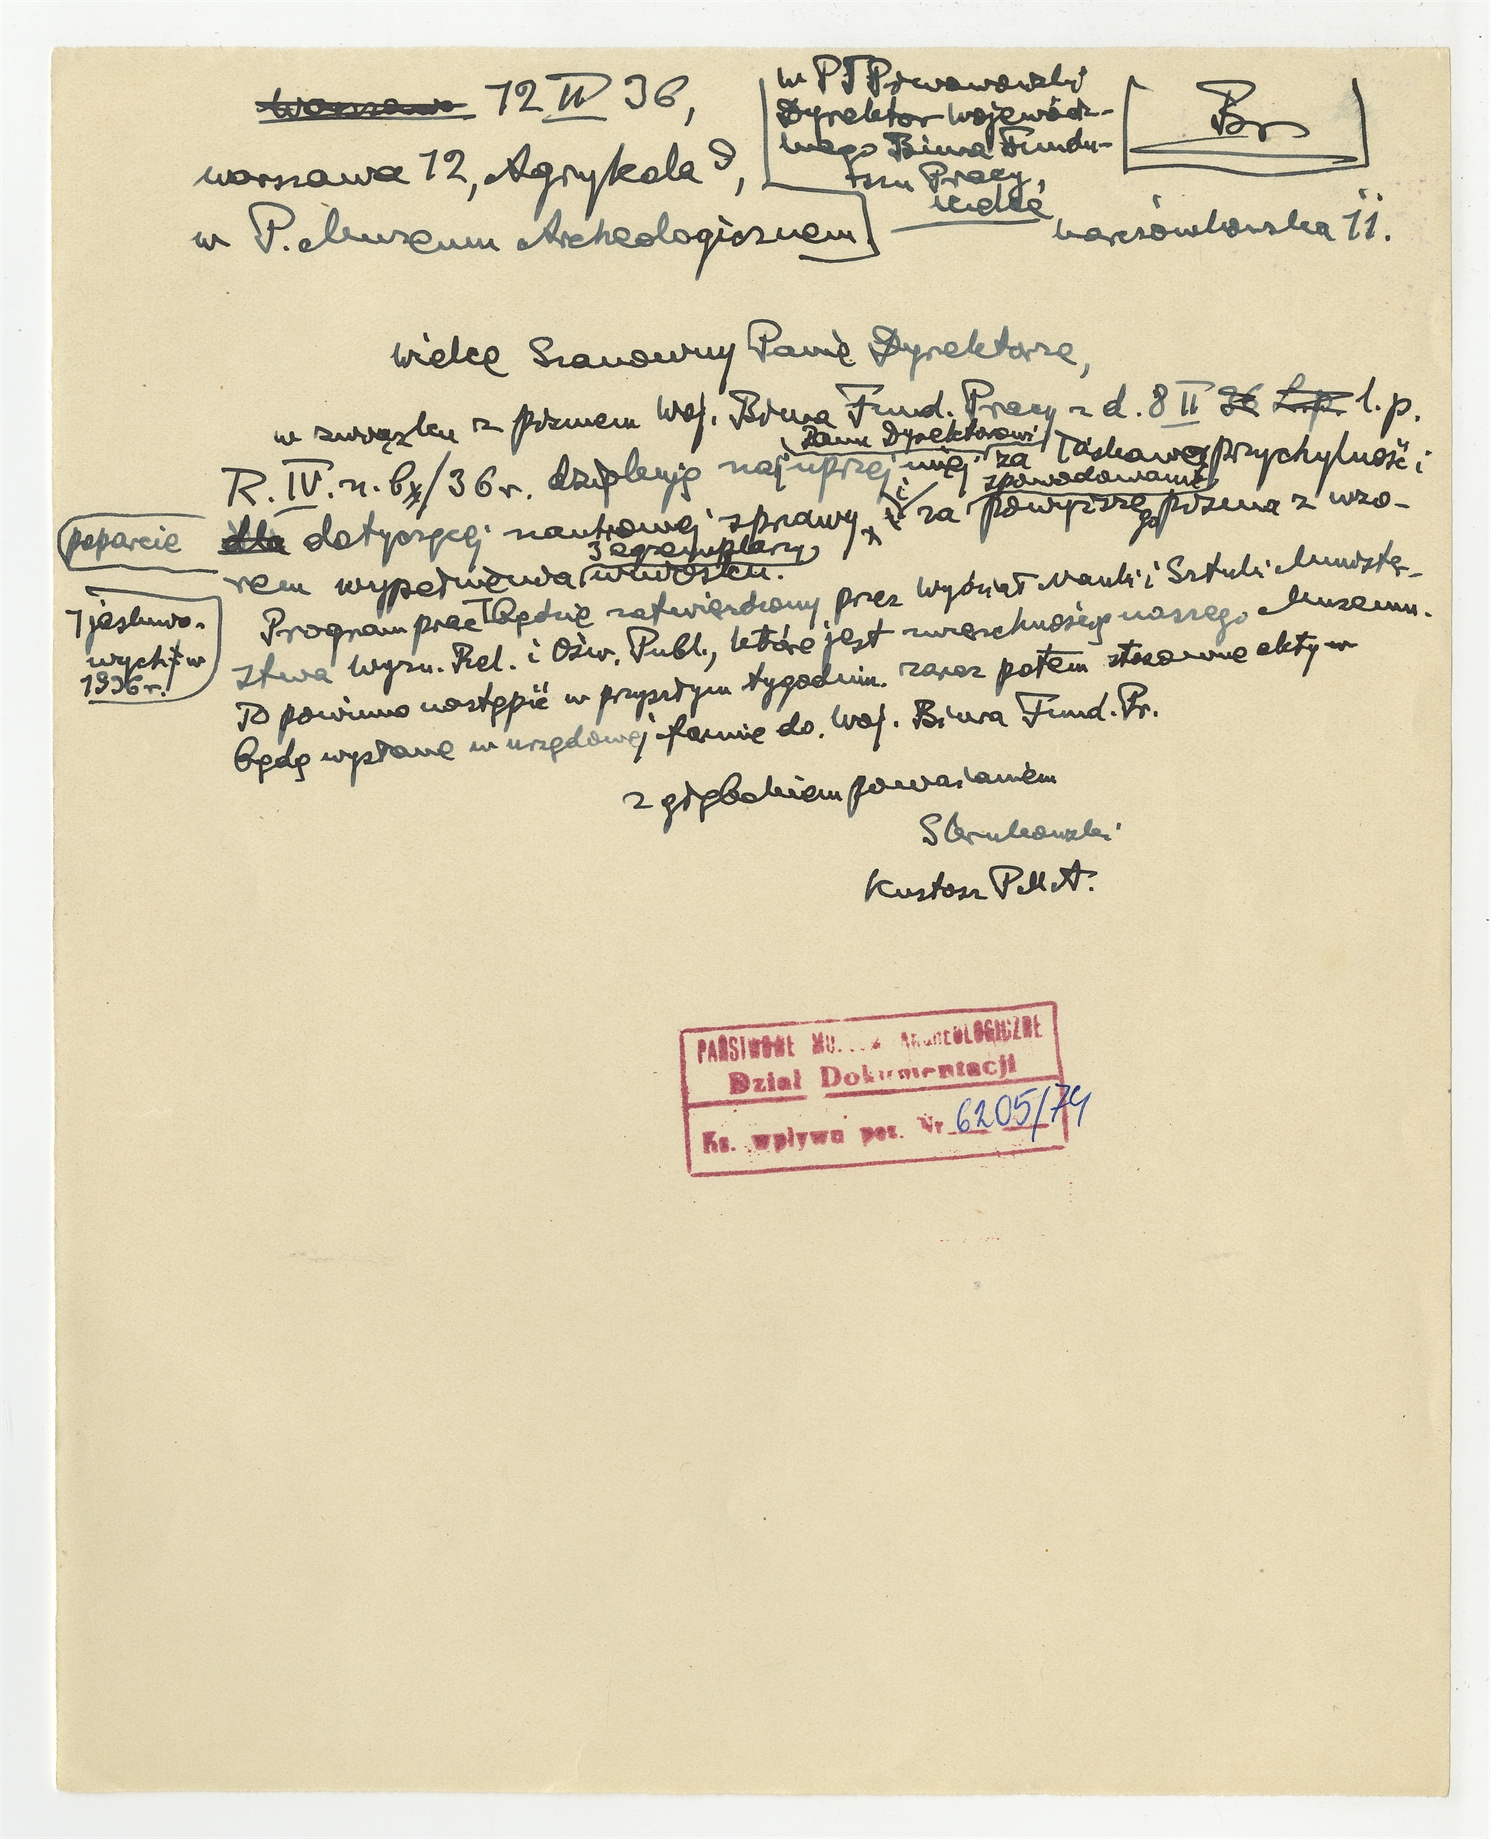 Warszawa 12 II 36,
Warszawa 12, Agrykola 9,
w P. Muzeum Archeologicznem.
W P J Piwowarski
Dyrektor Wojewódz-
kiego Biura Fundu-
szu Pracy,
Kielce
Br
Karczówkowska 11.
Wielce Szanowny Panie Dyrektorze,
w związku z pismem Woj. Biura Fund. Pracy z d. 8 II 36 L.p. l.p.
Panu Dyrektorowi
R. IV. n. 6/36 r. dziękuję najuprzejmiej za łaskawą przychylność i
poparcie
spowodowanie
dla dotyczącej naukowej sprawy, i za powyższego pisma z wzo-
3 egzemplarzy
rem wypełnienia wniosku.
7 jaskinio-
wych w
1936 r.
Program prac będzie zatwierdzony przez Wydział Nauki i Sztuki Minister-
stwa Wyzn. Rel. i Ośw. Publ., które jest zwierzchnością naszego Muzeum.
To powinno nastąpić w przyszłym tygodniu. Zaraz potem stosowne akty w
będą wysłane w urzędowej formie do Woj. Biura Fund. Pr.
Z głębokiem poważaniem
S Krukowski
Kustosz P.M.A.
PAŃSTWOWE MUZEUM ARCHEOLOGICZNE
Dział Dokumentacji
Ks. wpływu poz. Nr 6205/74